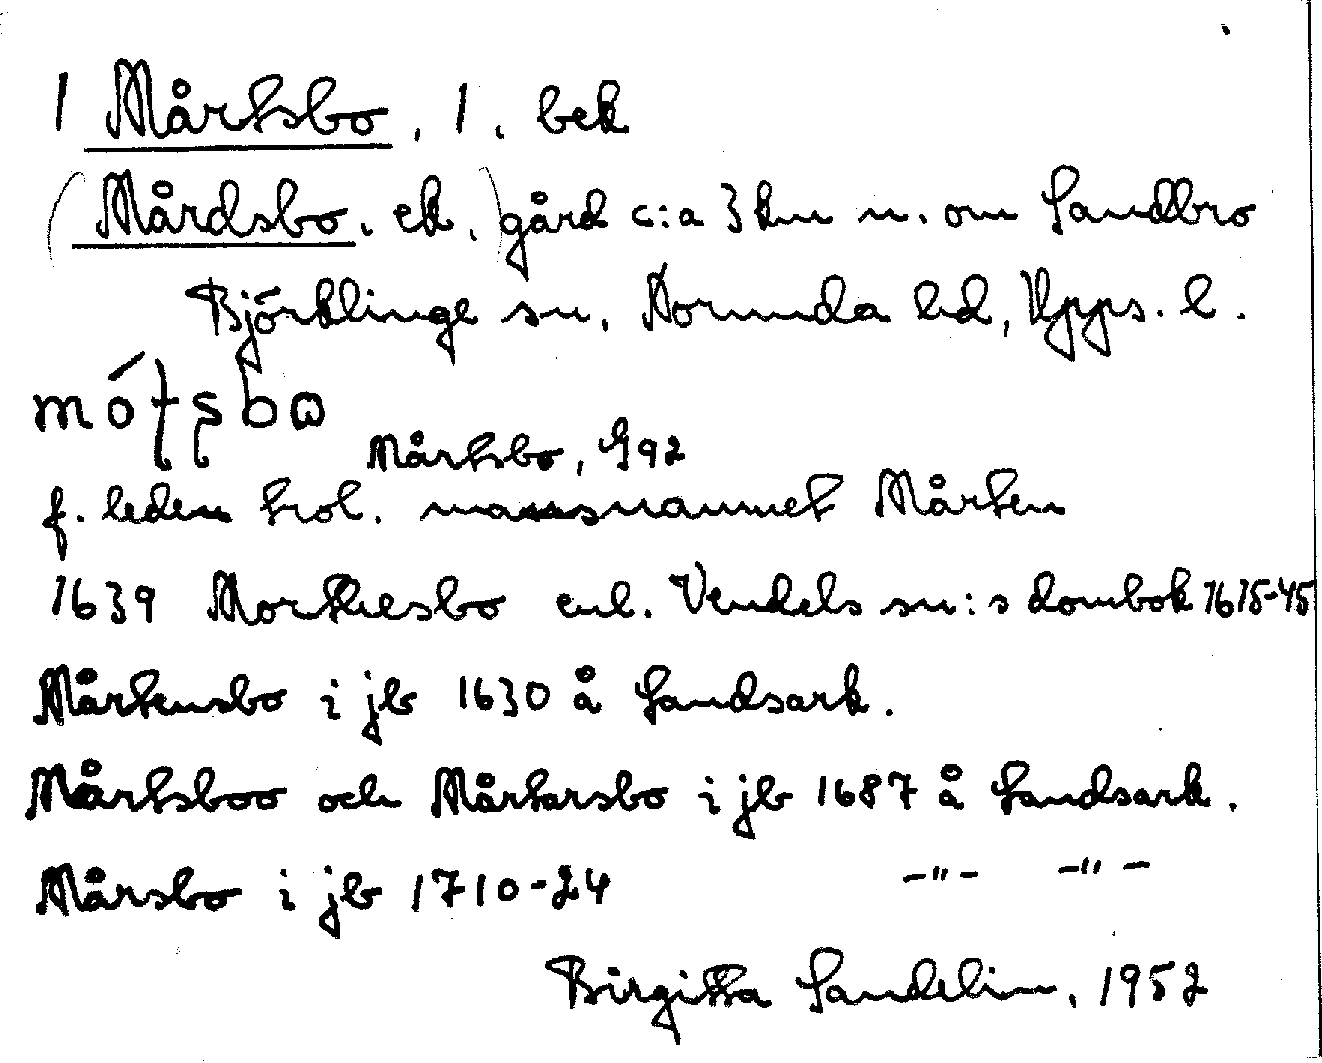 1 Mårtsbo, 1. bek
(Mårdsbo. ek.) gård c:a 3 km n. om Sandbro
Björklinge sn, Norunda hd, Upps. l.
mótsbω
Mårtsbo, G92
f. leden trol. mansnamnet Mårten
1639 Morthesbo enl. Vendels sn:s dombok 1615-45
Mårtensbo i jb 1630 å Landsark.
Mårtsboo och Mårtarsbo i jb 1687 å Landsark.
Mårsbo i jb 1710-24 -"- -"-
Birgitta Sandelin, 1952